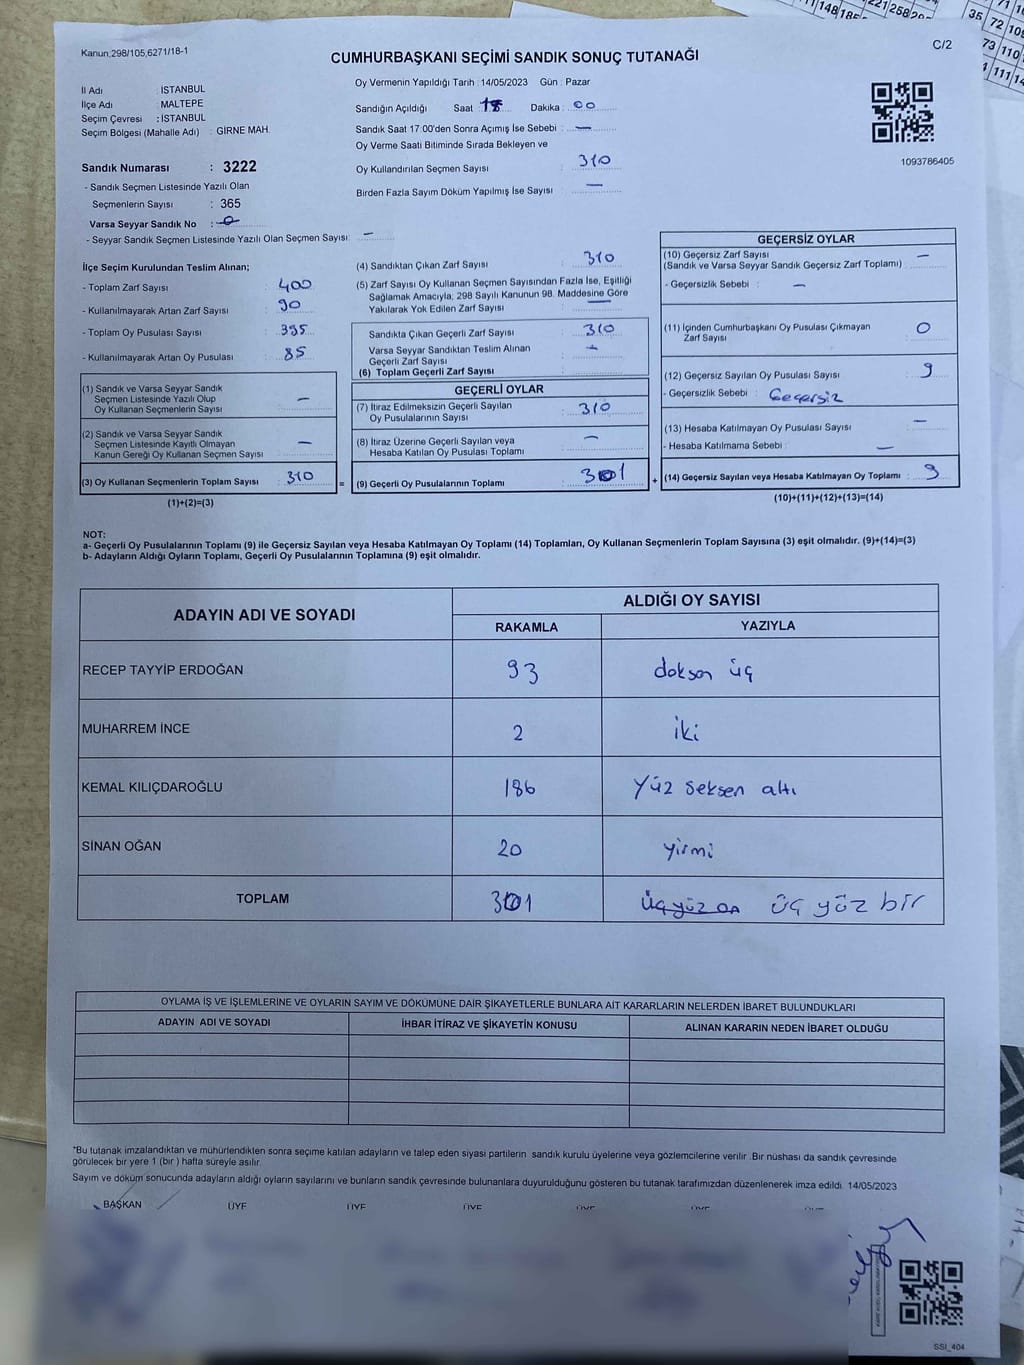 Kanun;298/105,6271/18-1
C/2
CUMHURBAŞKANI SEÇİMİ SANDIK SONUÇ TUTANAĞI
İl Adı : İSTANBUL
İlçe Adı : MALTEPE
Seçim Çevresi : İSTANBUL
Seçim Bölgesi (Mahalle Adı) : GİRNE MAH.
Sandık Numarası : 3222
- Sandık Seçmen Listesinde Yazılı Olan
Seçmenlerin Sayısı : 365
Varsa Seyyar Sandık No : 0
- Seyyar Sandık Seçmen Listesinde Yazılı Olan Seçmen Sayısı: —
Oy Vermenin Yapıldığı Tarih : 14/05/2023 Gün : Pazar
Sandığın Açıldığı Saat 18 Dakika : 00
Sandık Saat 17:00'den Sonra Açımış İse Sebebi : —
Oy Verme Saati Bitiminde Sırada Bekleyen ve
Oy Kullandırılan Seçmen Sayısı : 310
Birden Fazla Sayım Döküm Yapılmış İse Sayısı : —
1093786405
İlçe Seçim Kurulundan Teslim Alınan;
- Toplam Zarf Sayısı : 400
- Kullanılmayarak Artan Zarf Sayısı : 90
- Toplam Oy Pusulası Sayısı : 395
- Kullanılmayarak Artan Oy Pusulası : 85
(1) Sandık ve Varsa Seyyar Sandık
Seçmen Listesinde Yazılı Olup
Oy Kullanan Seçmenlerin Sayısı : —
(2) Sandık ve Varsa Seyyar Sandık
Seçmen Listesinde Kayıtlı Olmayan
Kanun Gereği Oy Kullanan Seçmen Sayısı : —
(3) Oy Kullanan Seçmenlerin Toplam Sayısı : 310
(1)+(2)=(3)
=
(4) Sandıktan Çıkan Zarf Sayısı : 310
(5) Zarf Sayısı Oy Kullanan Seçmen Sayısından Fazla İse, Eşitliği
Sağlamak Amacıyla, 298 Sayılı Kanunun 98. Maddesine Göre
Yakılarak Yok Edilen Zarf Sayısı : —
Sandıkta Çıkan Geçerli Zarf Sayısı : 310
Varsa Seyyar Sandıktan Teslim Alınan
Geçerli Zarf Sayısı : —
(6) Toplam Geçerli Zarf Sayısı :
GEÇERLİ OYLAR
(7) İtiraz Edilmeksizin Geçerli Sayılan
Oy Pusulalarının Sayısı : 310
(8) İtiraz Üzerine Geçerli Sayılan veya
Hesaba Katılan Oy Pusulası Toplamı : —
(9) Geçerli Oy Pusulalarının Toplamı : 301
+
GEÇERSİZ OYLAR
(10) Geçersiz Zarf Sayısı
(Sandık ve Varsa Seyyar Sandık Geçersiz Zarf Toplamı) : —
- Geçersizlik Sebebi : —
(11) İçinden Cumhurbaşkanı Oy Pusulası Çıkmayan
Zarf Sayısı : 0
(12) Geçersiz Sayılan Oy Pusulası Sayısı : 9
- Geçersizlik Sebebi : Geçersiz
(13) Hesaba Katılmayan Oy Pusulası Sayısı : —
- Hesaba Katılmama Sebebi : —
(14) Geçersiz Sayılan veya Hesaba Katılmayan Oy Toplamı : 9
(10)+(11)+(12)+(13)=(14)
NOT:
a- Geçerli Oy Pusulalarının Toplamı (9) ile Geçersiz Sayılan veya Hesaba Katılmayan Oy Toplamı (14) Toplamları, Oy Kullanan Seçmenlerin Toplam Sayısına (3) eşit olmalıdır. (9)+(14)=(3)
b- Adayların Aldığı Oyların Toplamı, Geçerli Oy Pusulalarının Toplamına (9) eşit olmalıdır.
ADAYIN ADI VE SOYADI ALDIĞI OY SAYISI
RAKAMLA YAZIYLA
RECEP TAYYİP ERDOĞAN 93 doksan üç
MUHARREM İNCE 2 iki
KEMAL KILIÇDAROĞLU 186 Yüz seksen altı
SİNAN OĞAN 20 yirmi
TOPLAM 301 üçyüz on üç yüz bir
OYLAMA İŞ VE İŞLEMLERİNE VE OYLARIN SAYIM VE DÖKÜMÜNE DAİR ŞİKAYETLERLE BUNLARA AİT KARARLARIN NELERDEN İBARET BULUNDUKLARI
ADAYIN ADI VE SOYADI İHBAR İTİRAZ VE ŞİKAYETİN KONUSU ALINAN KARARIN NEDEN İBARET OLDUĞU
*Bu tutanak imzalandıktan ve mühürlendikten sonra seçime katılan adayların ve talep eden siyasi partilerin sandık kurulu üyelerine veya gözlemcilerine verilir. Bir nüshası da sandık çevresinde
görülecek bir yere 1 (bir ) hafta süreyle asılır.
Sayım ve döküm sonucunda adayların aldığı oyların sayılarını ve bunların sandık çevresinde bulunanlara duyurulduğunu gösteren bu tutanak tarafımızdan düzenlenerek imza edildi. 14/05/2023
BAŞKAN ÜYE ÜYE ÜYE ÜYE ÜYE ÜYE
SSI_404